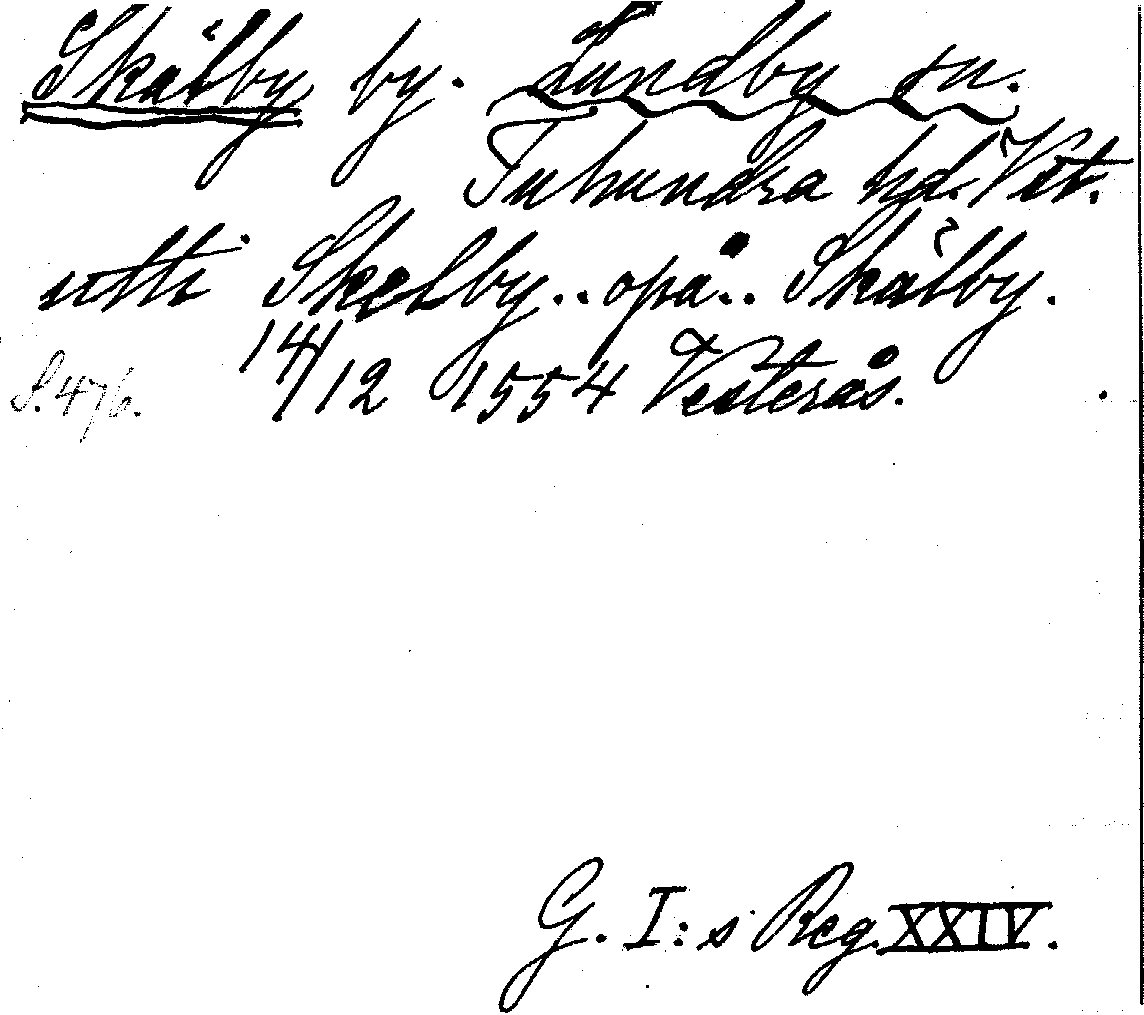 Skälby by. Lundby sn.
Tuhundra hd. Vstm.
utti Skelby.. opå.. Skälby.
14/12 1554 Vesterås.
S. 476.
G. I:s Reg. XXIV.